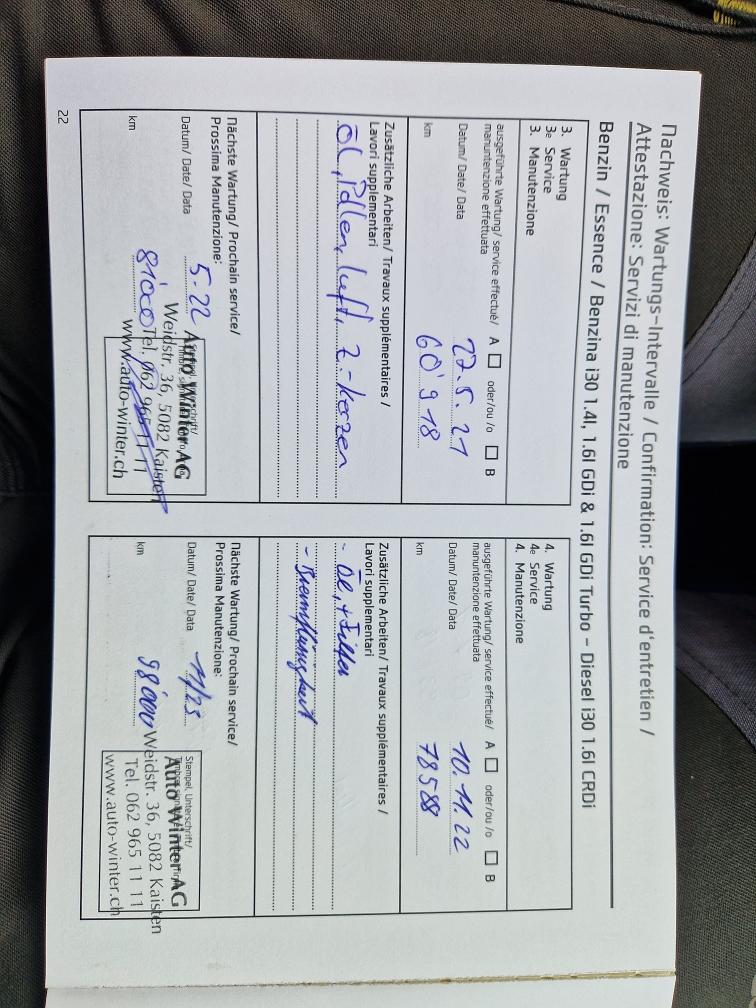 Nachweis: Wartungs-Intervalle / Confirmation: Service d'entretien /
Attestazione: Servizi di manutenzione
Benzin / Essence / Benzina i30 1.4l, 1.6l GDi & 1.6l GDi Turbo – Diesel i30 1.6l CRDi
3. Wartung
3e Service
3. Manutenzione
ausgeführte Wartung/ service effectué/ A oder/ou /o B
manuntenzione effettuata
Datum/ Date/ Data 27.5.21
km 60'918
Zusätzliche Arbeiten/ Travaux supplémentaires /
Lavori supplementari
ÖL, Pollen, Luft, Z.-Kerzen
Nächste Wartung/ Prochain service/
Prossima Manutenzione:
Datum/ Date/ Data 5.22
km 81'000
Auto Winter AG
Weidstr. 36, 5082 Kaisten
Tel. 062 965 11 11
www.auto-winter.ch
4. Wartung
4e Service
4. Manutenzione
ausgeführte Wartung/ service effectué/ A oder/ou /o B
manuntenzione effettuata
Datum/ Date/ Data 10.11.22
km 78588
Zusätzliche Arbeiten/ Travaux supplémentaires /
Lavori supplementari
- Öl, + Filter
- Bremsflüssigkeit
Nächste Wartung/ Prochain service/
Prossima Manutenzione:
Datum/ Date/ Data 11/23
km 98'000
Stempel, Unterschrift/
Auto Winter AG
Weidstr. 36, 5082 Kaisten
Tel. 062 965 11 11
www.auto-winter.ch
22